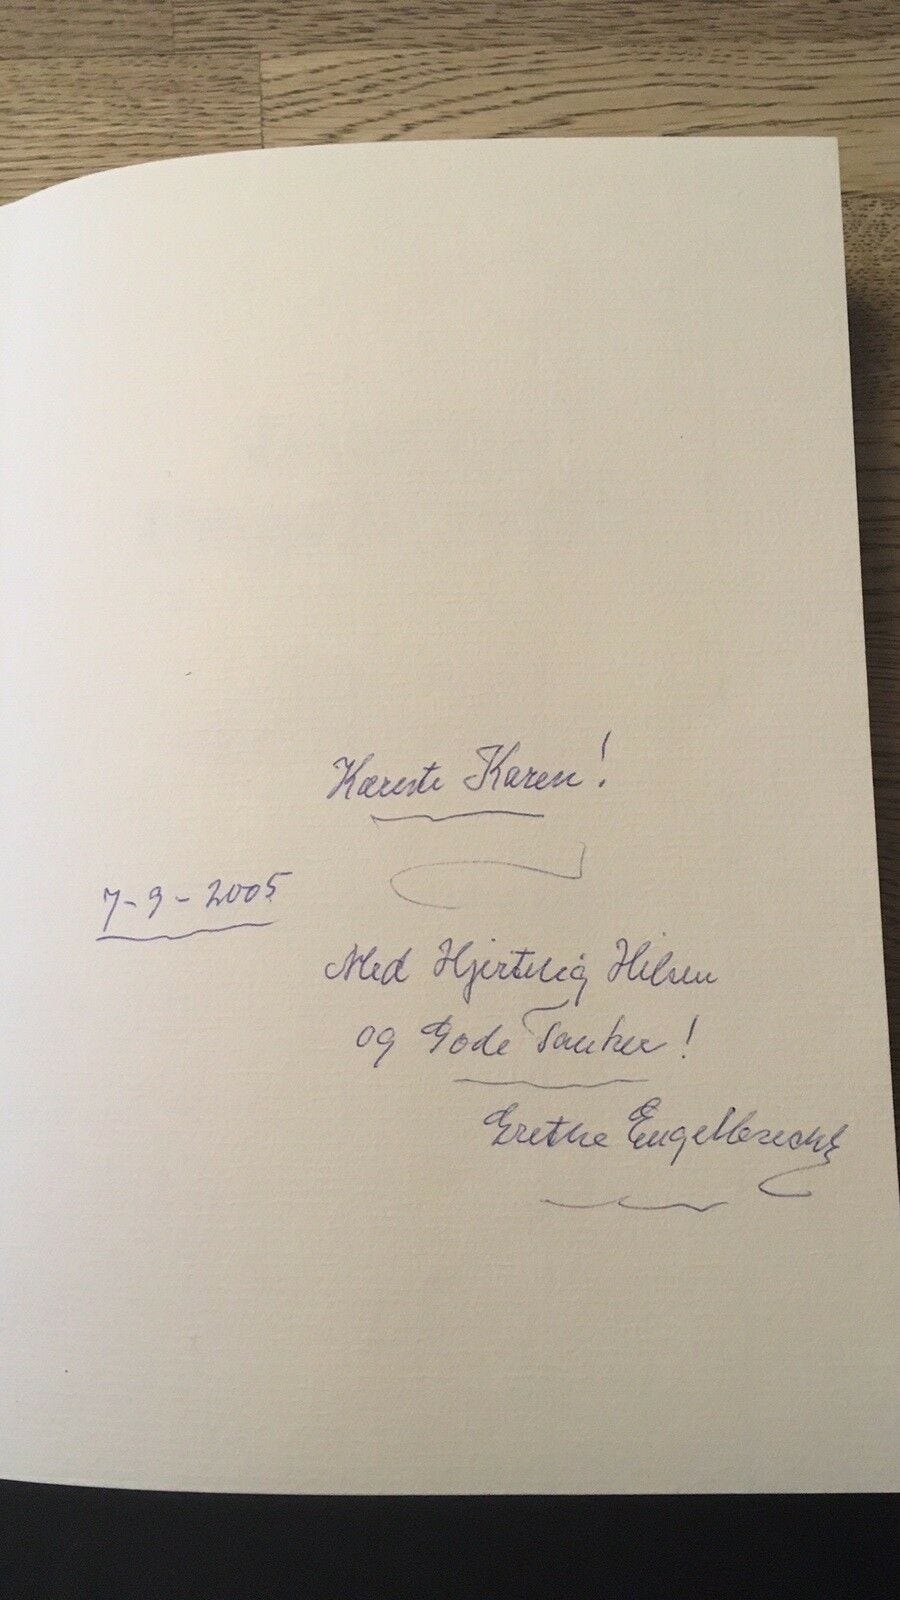 Kæreste Karen!
7-9-2005
Med Hjertelig Hilsen
og Gode Tanker!
Grethe Engelbrecht